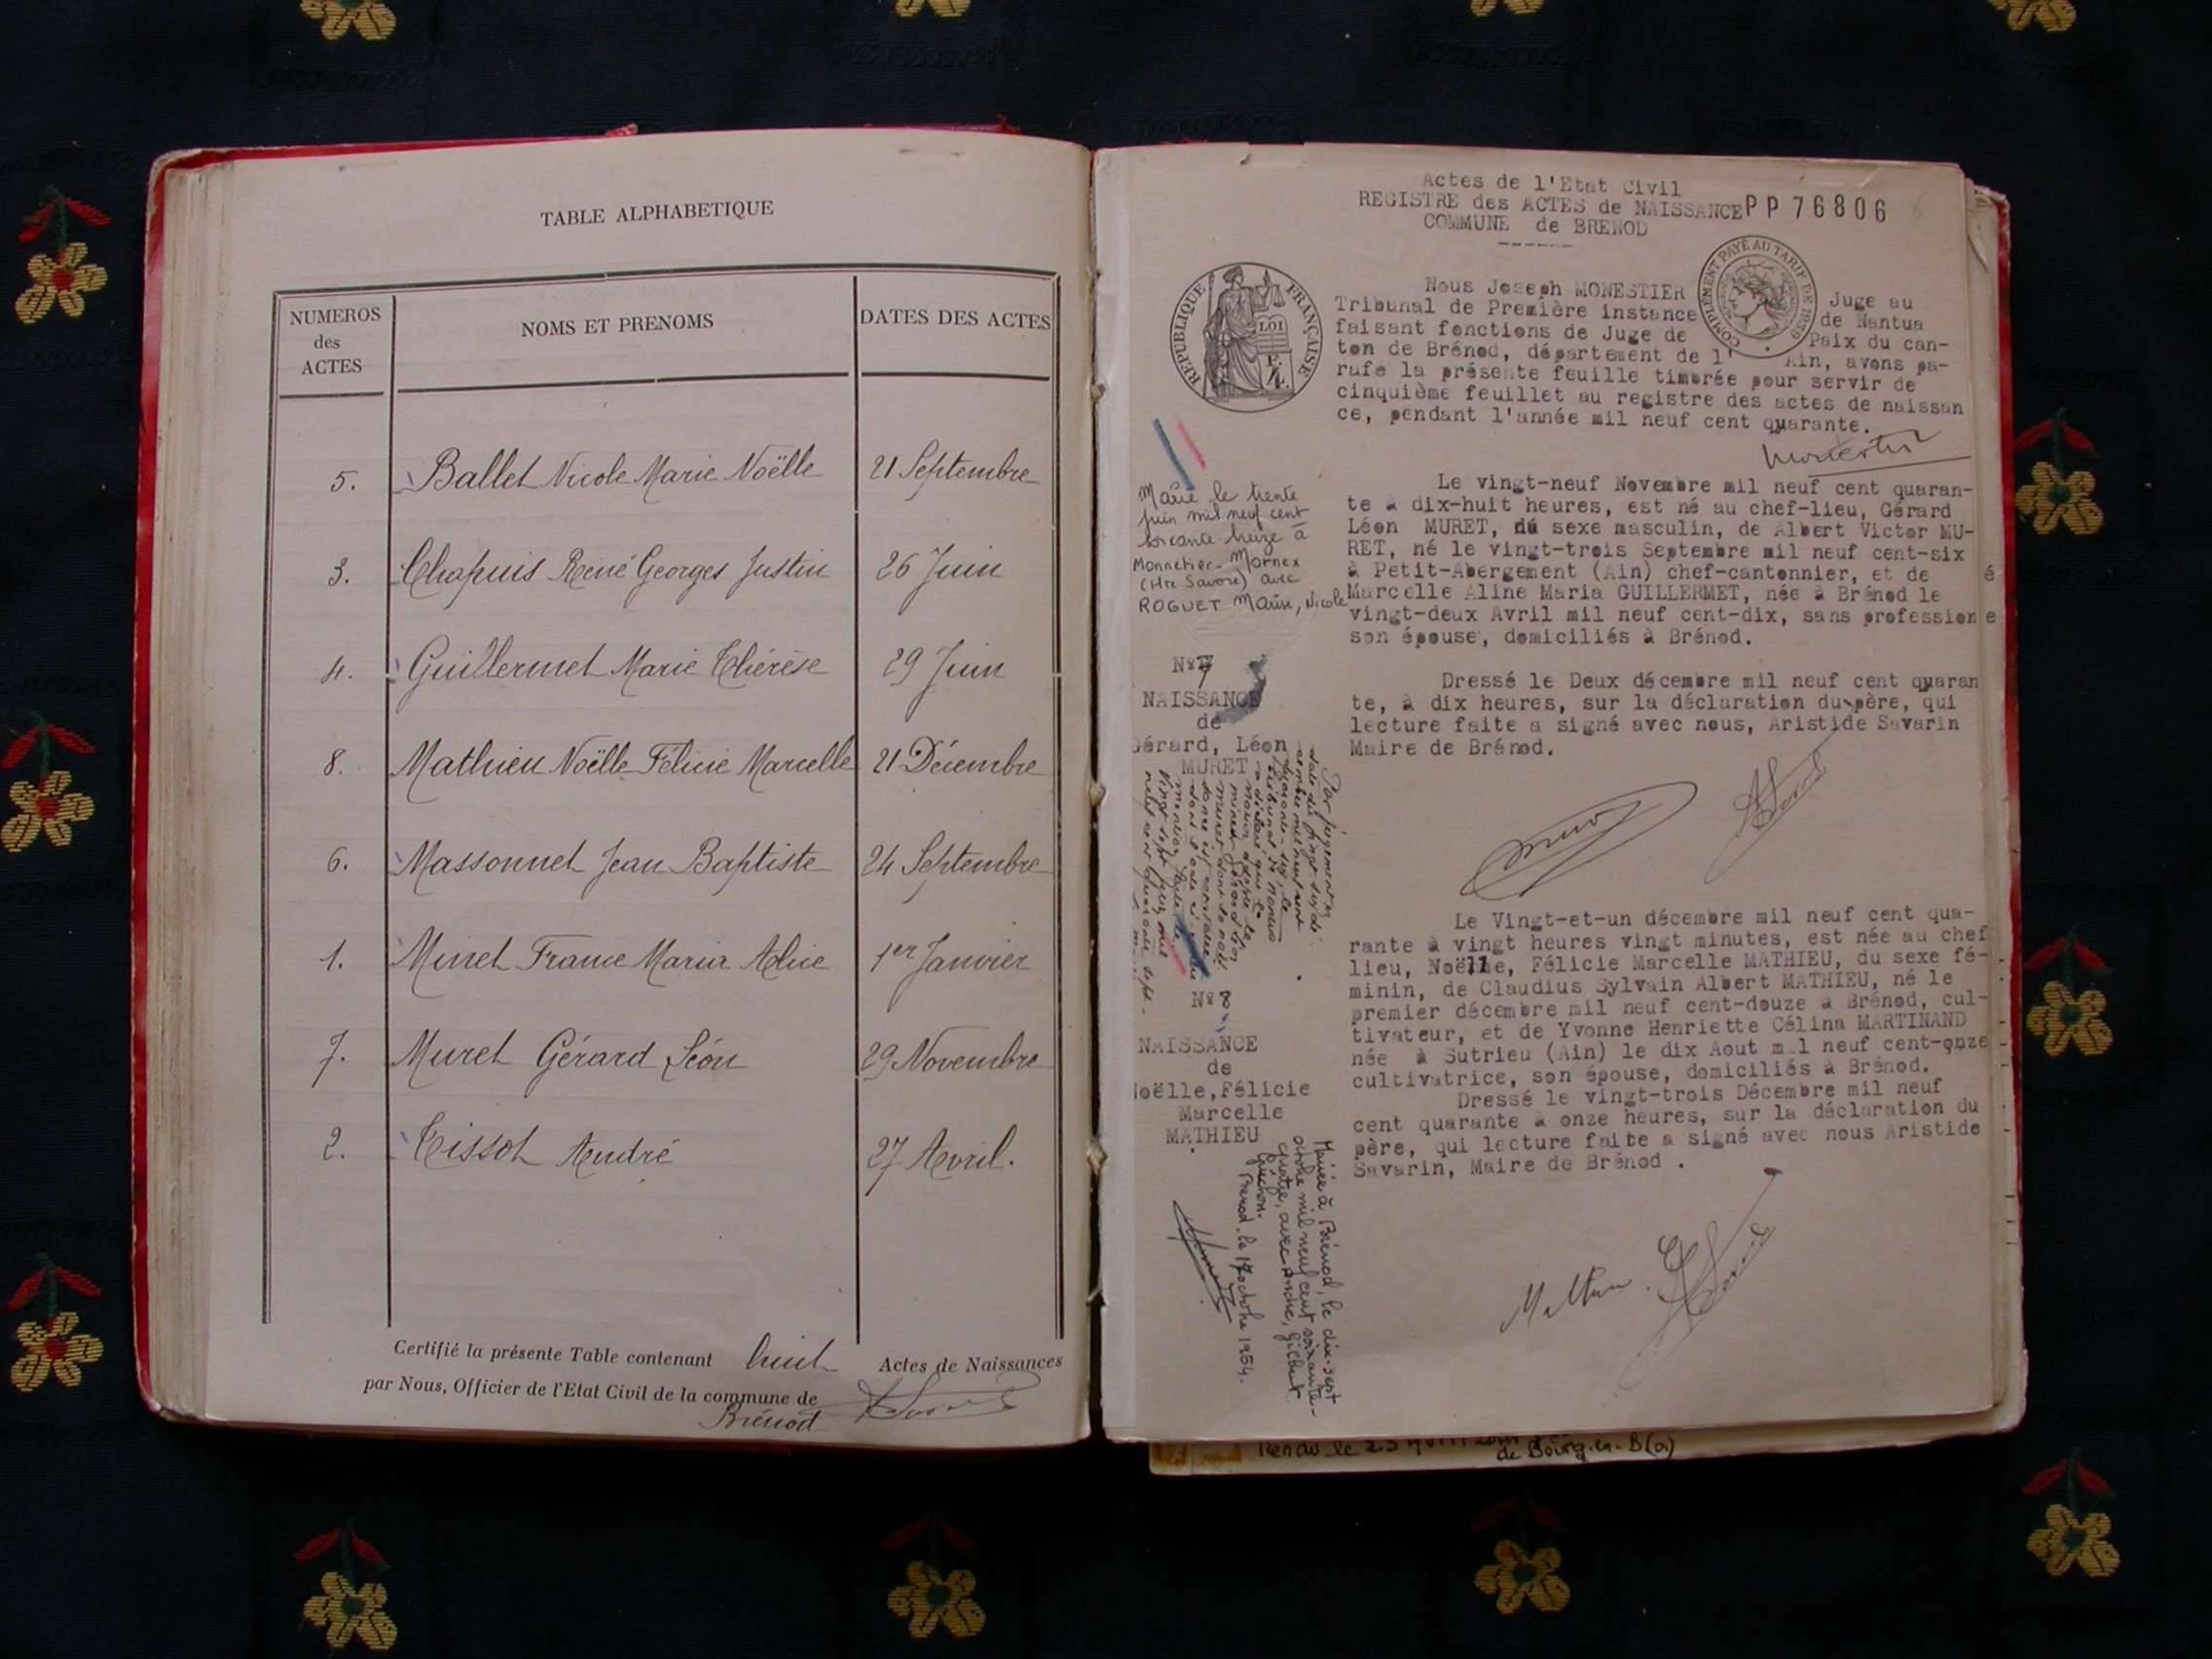 TABLE ALPHABETIQUE
NUMEROS
des
ACTES
NOMS ET PRENOMS
DATES DES ACTES
5. Ballet Nicole Marie Noëlle 21 Septembre
3. Chapuis René Georges Justin 26 Juin
4. Guillermet Marie Thérèse 29 Juin
8. Mathieu Noëlle Félicie Marcelle 21 Décembre
6. Massonnet Jean Baptiste 24 Septembre
1. Minet France Maria Alice 1er Janvier
7. Muret Gérard Léon 29 Novembre
2. Tissot André 27 Avril.
Certifié la présente Table contenant huit Actes de Naissances
par Nous, Officier de l'Etat Civil de la commune de
Brénod
Actes de l'Etat Civil
REGISTRE des ACTES de NAISSANCE PP 76806
COMMUNE de BRENOD
REPUBLIQUE FRANÇAISE
LOI
COMPLÉMENT PAYÉ AU TARIF DE 1939
Nous Joseph MONESTIER Juge au
Tribunal de Première instance de Nantua
faisant fonctions de Juge de Paix du can-
ton de Brénod, département de l'Ain, avons pa-
rafé la présente feuille timbrée pour servir de
cinquième feuillet au registre des actes de naissan
ce, pendant l'année mil neuf cent quarante.
Monestier
Marié le trente
juin mil neuf cent
soixante treize à
Monnetier-Mornex
(Hte Savoie) avec
ROGUET Marise, Nicole
Le vingt-neuf Novembre mil neuf cent quaran-
te à dix-huit heures, est né au chef-lieu, Gérard
Léon MURET, du sexe masculin, de Albert Victor MU-
RET, né le vingt-trois Septembre mil neuf cent-six
à Petit-Abergement (Ain) chef-cantonnier, et de
Marcelle Aline Maria GUILLERMET, née à Brénod le
vingt-deux Avril mil neuf cent-dix, sans profession
son épouse, domiciliés à Brénod.
N° 7
NAISSANCE
de
Gérard, Léon
MURET
Dressé le Deux décembre mil neuf cent quaran
te, à dix heures, sur la déclaration du père, qui
lecture faite a signé avec nous, Aristide Savarin
Maire de Brénod.
Par jugement en
N° 8
NAISSANCE
de
Noëlle,Félicie
Marcelle
MATHIEU
Le Vingt-et-un décembre mil neuf cent qua-
rante à vingt heures vingt minutes, est née au chef
lieu, Noëlle, Félicie Marcelle MATHIEU, du sexe fé-
minin, de Claudius Sylvain Albert MATHIEU, né le
premier décembre mil neuf cent-douze à Brénod, cul-
tivateur, et de Yvonne Henriette Célina MARTINAND
née à Sutrieu (Ain) le dix Aout mil neuf cent-onze
cultivatrice, son épouse, domiciliés à Brénod.
Dressé le vingt-trois Décembre mil neuf
cent quarante à onze heures, sur la déclaration du
père, qui lecture faite a signé avec nous Aristide
Savarin, Maire de Brénod .
Mariée à Brénod, le dix-sept
octobre mil neuf cent soixante-
quatre, avec André, Gilbert
Guichon.
Brénod, le 17 octobre 1964.
Rendu le 25
de Bourg-en-B(a)